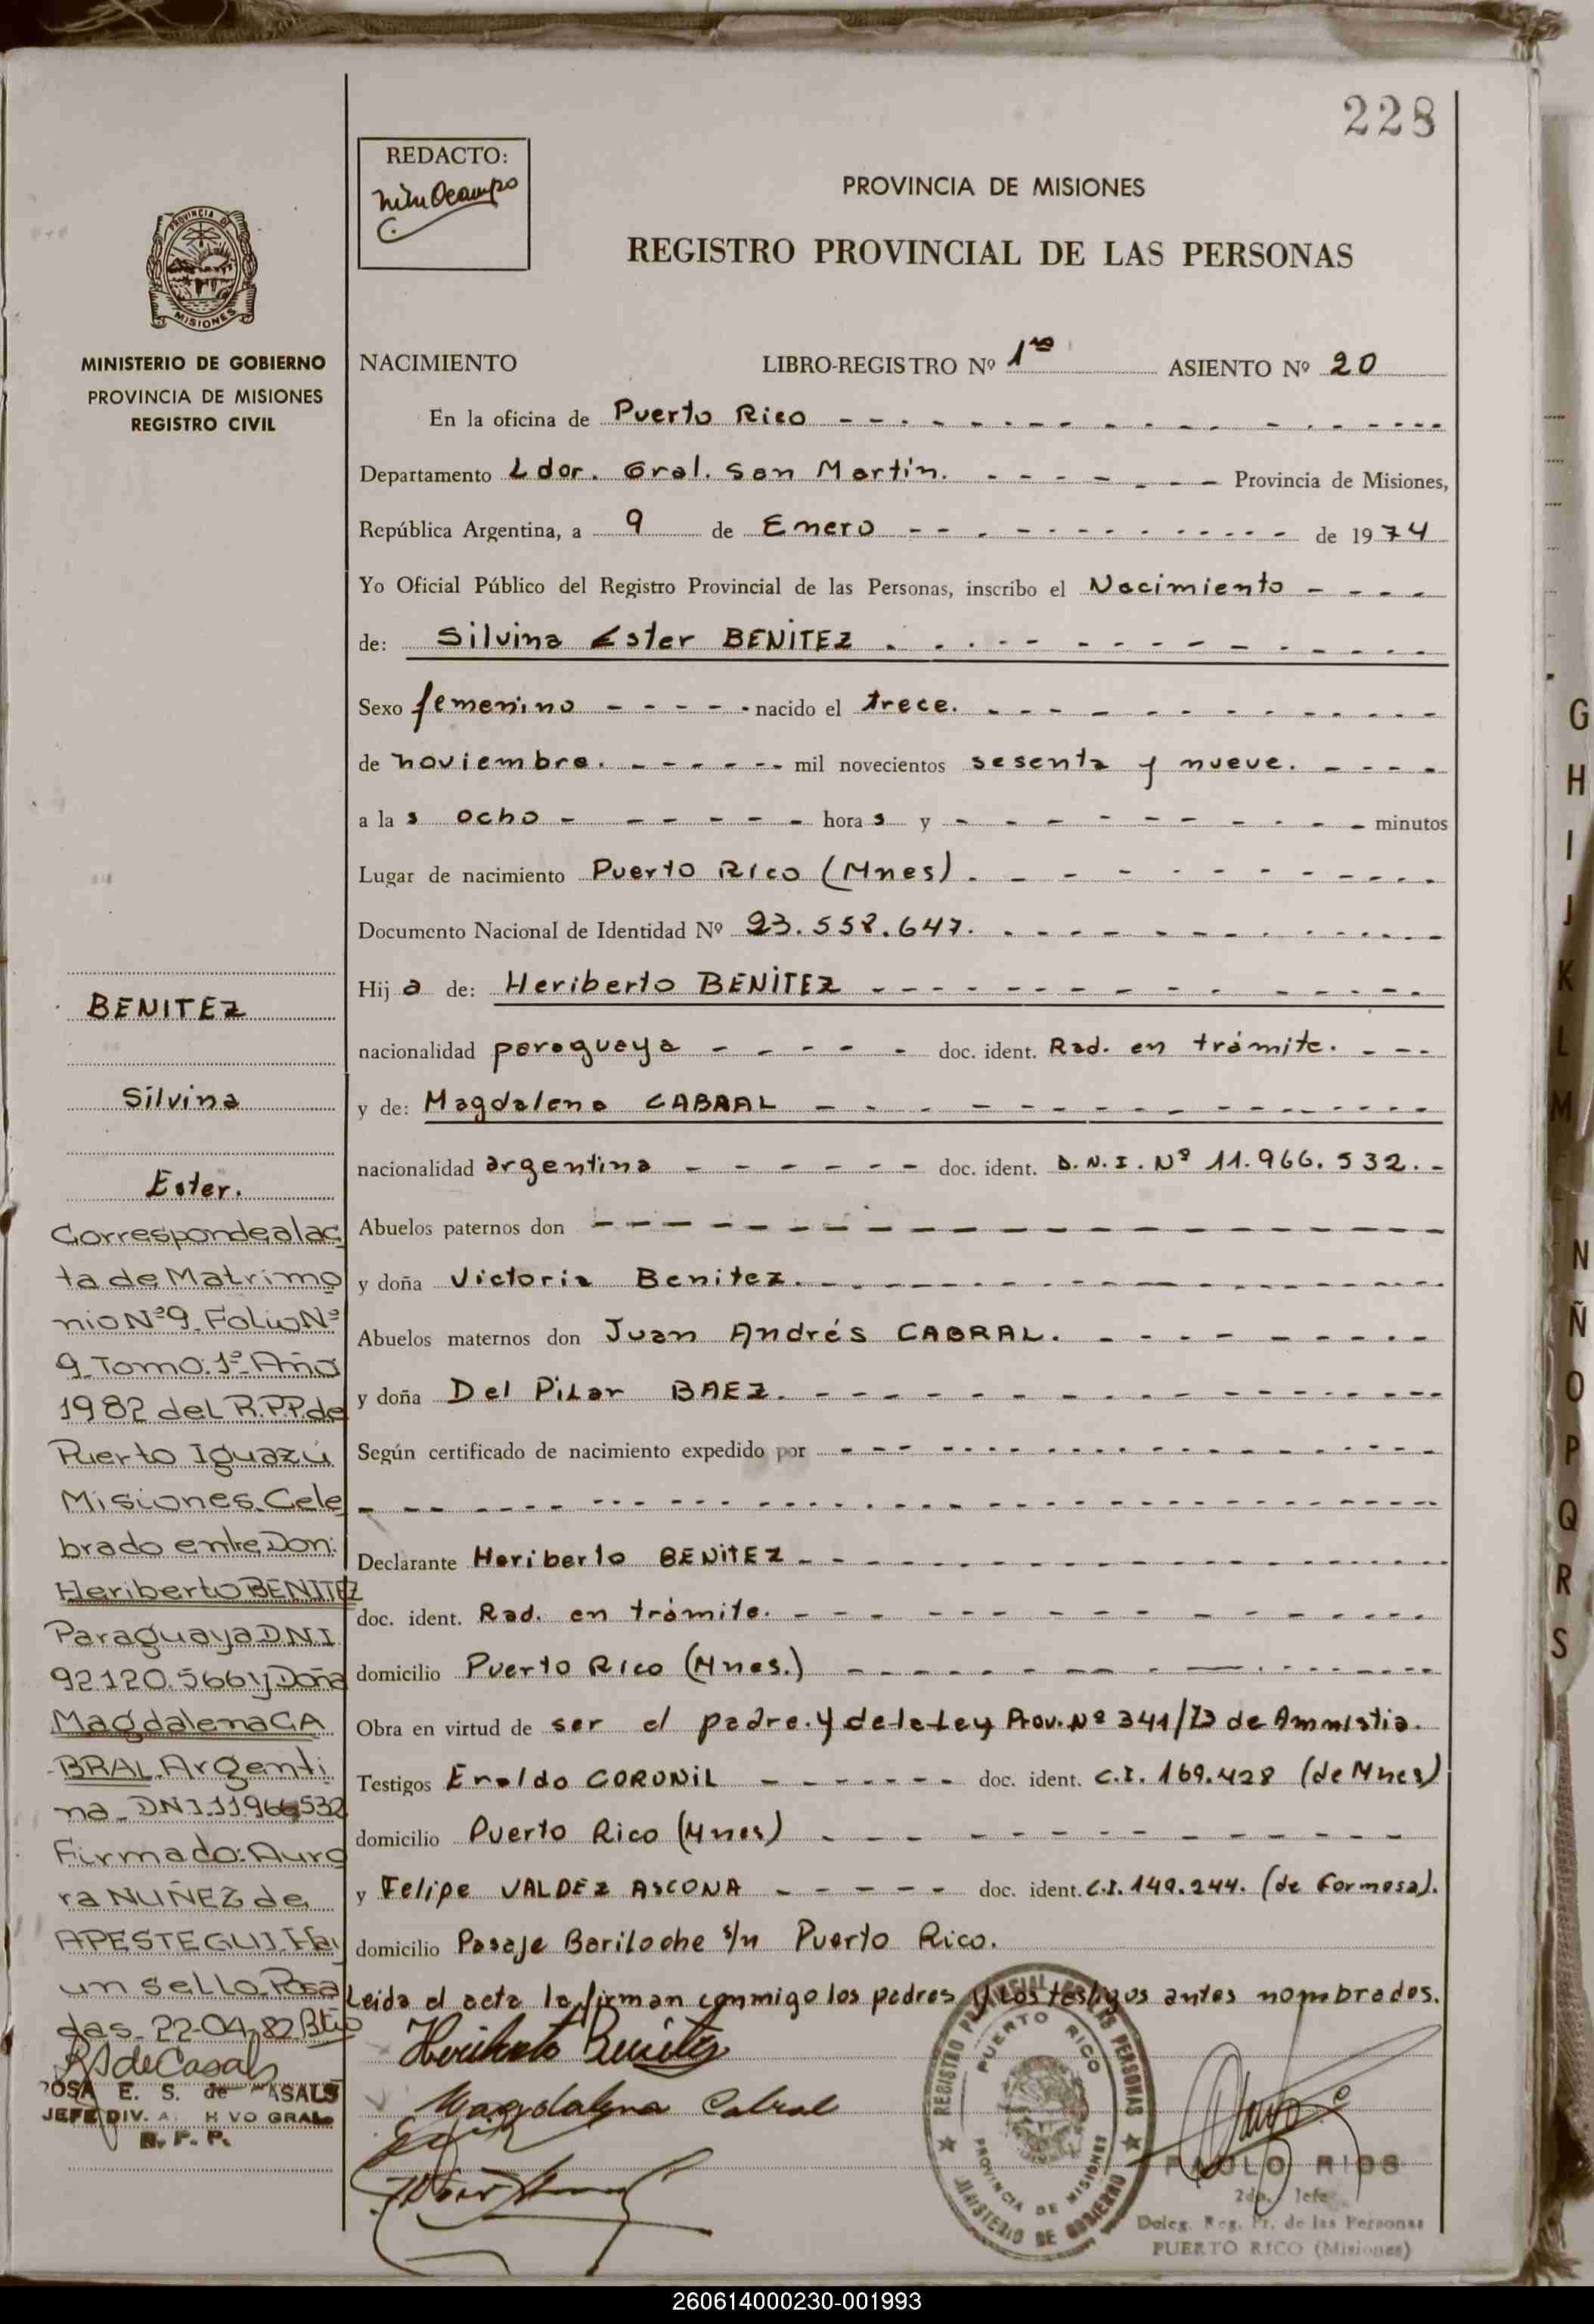 228
REDACTO:
Ocampo
PROVINCIA DE MISIONES
REGISTRO PROVINCIAL DE LAS PERSONAS
PROVINCIA DE
MISIONES
MINISTERIO DE GOBIERNO
PROVINCIA DE MISIONES
REGISTRO CIVIL
NACIMIENTO LIBRO-REGISTRO Nº 1ro ASIENTO Nº 20
En la oficina de Puerto Rico
Departamento Ldor. Gral. San Martín. Provincia de Misiones,
República Argentina, a 9 de Enero de 1974
Yo Oficial Público del Registro Provincial de las Personas, inscribo el Nacimiento
de: Silvina Ester BENITEZ
Sexo femenino nacido el trece.
de noviembre. mil novecientos sesenta y nueve.
a las ocho horas y minutos
Lugar de nacimiento Puerto Rico (Mnes).
Documento Nacional de Identidad Nº 23.558.647.
Hija de: Heriberto BENITEZ
nacionalidad paraguaya doc. ident. Rad. en trámite.
y de: Magdalena CABRAL
nacionalidad argentina doc. ident. D.N.I. Nº 11.966.532.
Abuelos paternos don
y doña Victoria Benitez.
Abuelos maternos don Juan Andrés CABRAL.
y doña Del Pilar BAEZ.
Según certificado de nacimiento expedido por
Declarante Heriberto BENITEZ
doc. ident. Rad. en trámite.
domicilio Puerto Rico (Mnes.)
Obra en virtud de ser el padre. y de la Ley Prov. Nº 341/73 de Amnistia.
Testigos Eraldo CORONIL doc. ident. C.I. 169.428 (de Mnes)
domicilio Puerto Rico (Mnes)
y Felipe VALDEZ ASCONA doc. ident. C.I. 149.244. (de Formosa).
domicilio Pasaje Bariloche s/n Puerto Rico.
Leida el acta la firman conmigo los padres y los testigos antes nombrados.
Heriberto Benitez
Magdalena Cabral
REGISTRO PROVINCIAL DE LAS PERSONAS
PUERTO RICO
PROVINCIA DE MISIONES
MINISTERIO DE GOBIERNO
PAULO RIOS
2do. Jefe
Deleg. Reg. Pr. de las Personas
PUERTO RICO (Misiones)
BENITEZ
Silvina
Ester.
Corresponde a la ac
ta de Matrimo
nio Nº9. Folio Nº
9 Tomo. 1º Año
1982 del R.P.P. de
Puerto Iguazú
Misiones. Cele
brado entre Don:
Heriberto BENITEZ
Paraguaya DNI
92.120.566 y Doña
Magdalena CA
BRAL. Argenti
na. DNI. 11966532
Firmado: Auro
ra NUÑEZ de
APESTEGUI. Hay
un sello. Posa
das. 22-04-82
RS de Casals
ROSA E. S. de CASALS
JEFE DIV. ARCHIVO GRAL.
R. P. P.
G
H
I
J
K
L
M
N
Ñ
O
P
Q
R
S
260614000230-001993